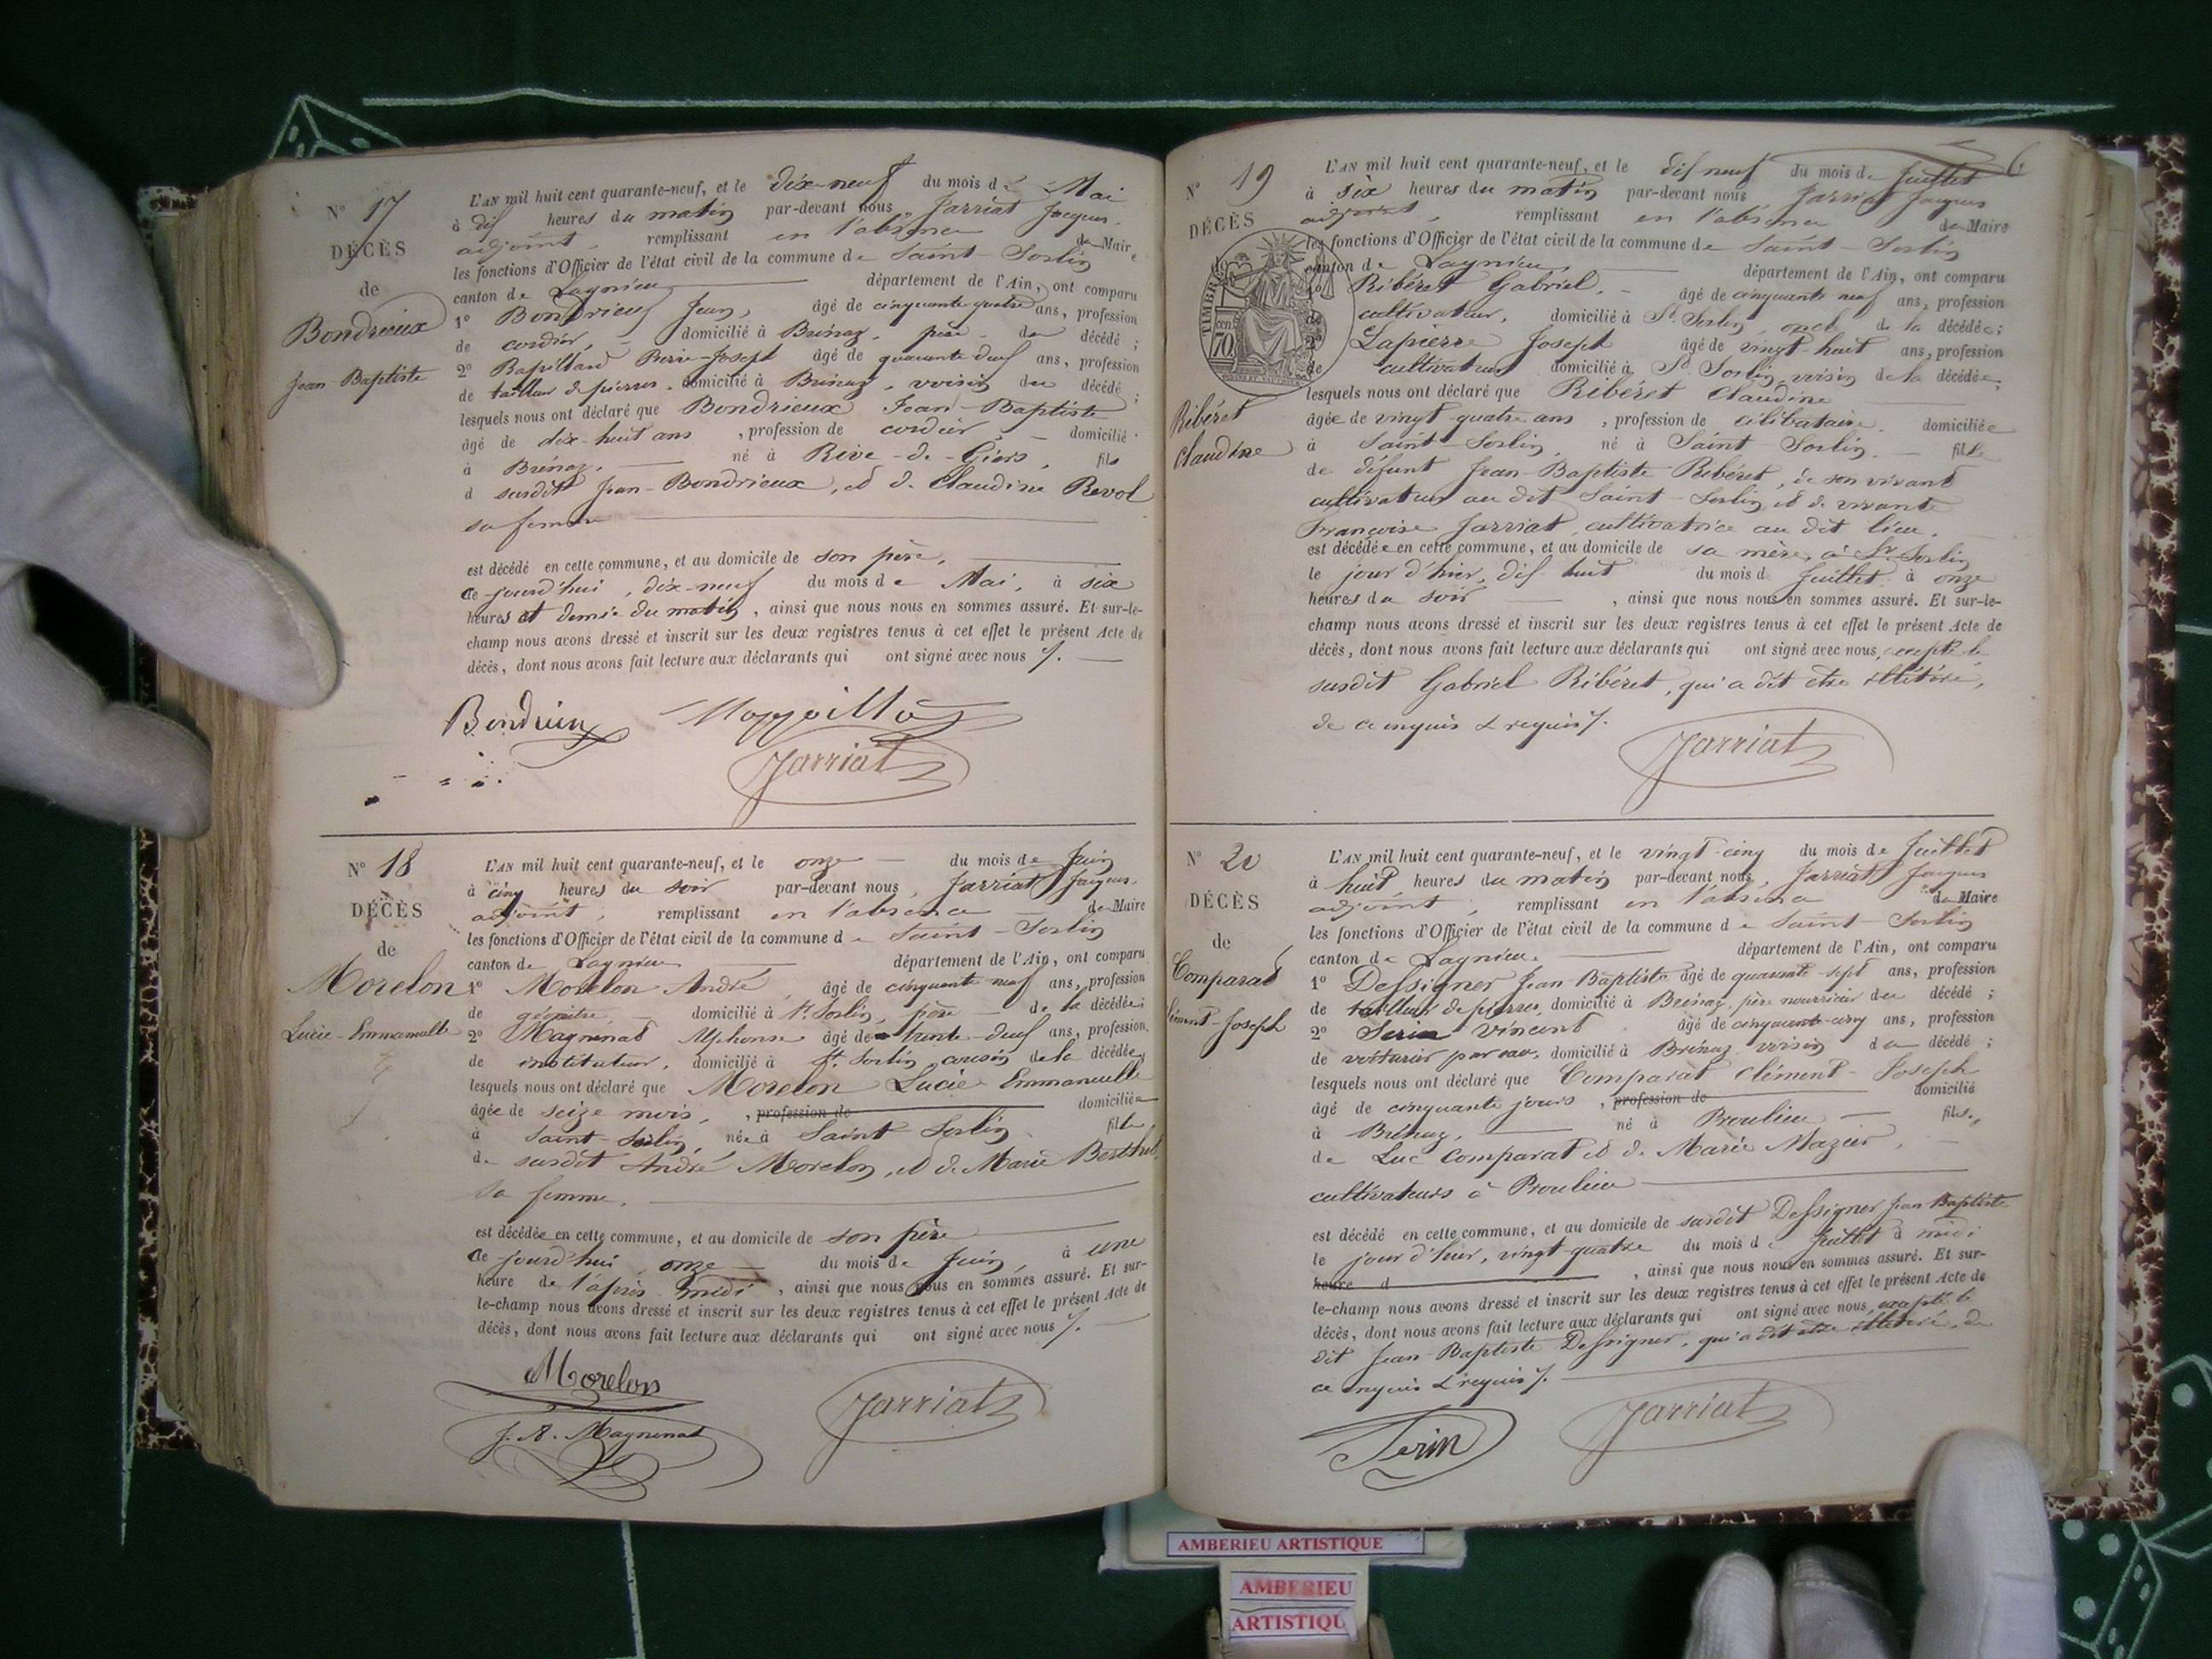 N° 17
DÉCÈS
de
Bondrieux
Jean-Baptiste
L'AN mil huit cent quarante-neuf, et le dix-neuf du mois de Mai
à dix heures du matin par-devant nous, Jarriat Jacques
adjoint, remplissant en l'absence du Maire
les fonctions d'Officier de l'état civil de la commune de Saint-Sorlin
canton de Lagnieu département de l'Ain, ont comparu
1° Bondrieux Jean, âgé de cinquante quatre ans, profession
de cordier, domicilié à Brénaz, père du décédé ;
2° Rapillard Pierre-Joseph âgé de quarante deux ans, profession
de tailleur de pierres, domicilié à Brénaz, voisin du décédé ;
lesquels nous ont déclaré que Bondrieux Jean-Baptiste
âgé de dix-huit ans, profession de cordier, domicilié
à Brénaz, né à Rive-de-Giers, fils
d susdit Jean-Bondrieux, et de Claudine Revol
sa femme
est décédé en cette commune, et au domicile de son père,
ce jourd'hui, dix-neuf du mois de Mai, à six
heures et demie du matin, ainsi que nous nous en sommes assuré. Et sur-le-
champ nous avons dressé et inscrit sur les deux registres tenus à cet effet le présent Acte de
décès, dont nous avons fait lecture aux déclarants qui ont signé avec nous
Jarriat
N° 18
DÉCÈS
de
Morelon
Lucie-Emmanuelle
L'AN mil huit cent quarante-neuf, et le onze du mois de Juin
à cinq heures du soir par-devant nous, Jarriat Jacques
adjoint, remplissant en l'absence du Maire
les fonctions d'Officier de l'état civil de la commune de Saint-Sorlin
canton de Lagnieu département de l'Ain, ont comparu
1° Morelon André, âgé de cinquante neuf ans, profession
de géomètre domicilié à St. Sorlin, père de la décédée ;
2° Magnenat Alphonse âgé de trente-deux ans, profession
de instituteur, domicilié à St. Sorlin, cousin de la décédée ;
lesquels nous ont déclaré que Morelon Lucie Emmanuelle
âgée de seize mois, , profession de domiciliée
à Saint-Sorlin, née à Saint Sorlin fille
de susdit André Morelon, et de Marie Berthet
sa femme.
est décédée en cette commune, et au domicile de son père
ce jourd'hui onze du mois de Juin, à une
heure de l'après midi, ainsi que nous nous en sommes assuré. Et sur-
le-champ nous avons dressé et inscrit sur les deux registres tenus à cet effet le présent Acte de
décès, dont nous avons fait lecture aux déclarants qui ont signé avec nous
Morelon
J. A. Magnenat
Jarriat
6
N° 19
DÉCÈS
TIMBRE
70
Ribéret
Claudine
L'AN mil huit cent quarante-neuf, et le dix neuf du mois de Juillet
à six heures du matin par-devant nous Jarriat Jacques
adjoint, remplissant en l'absence du Maire
les fonctions d'Officier de l'état civil de la commune de Saint-Sorlin
canton de Lagnieu, département de l'Ain, ont comparu
Ribéret Gabriel, âgé de cinquante neuf ans, profession
cultivateur, domicilié à St. Sorlin, oncle de la décédée ;
2° Lapierre Joseph âgé de vingt-huit ans, profession
de cultivateur domicilié à St Sorlin, voisin de la décédée ;
lesquels nous ont déclaré que Ribéret Claudine
âgée de vingt quatre ans, profession de célibataire domiciliée
à Saint-Sorlin, né à Saint Sorlin. fille
de défunt Jean-Baptiste Ribéret, de son vivant
cultivateur au dit Saint-Sorlin et de vivante
Françoise Jarriat, cultivatrice au dit lieu,
est décédée en cette commune, et au domicile de sa mère, à St Sorlin
le jour d'hier, dix huit du mois de Juillet à onze
heures du soir, ainsi que nous nous en sommes assuré. Et sur-le-
champ nous avons dressé et inscrit sur les deux registres tenus à cet effet le présent Acte de
décès, dont nous avons fait lecture aux déclarants qui ont signé avec nous, excepté le
susdit Gabriel Ribéret, qui a dit etre illétéré,
de ce enquis & requis
Jarriat
N° 20
DÉCÈS
de
Comparat
Clément-Joseph
L'AN mil huit cent quarante-neuf, et le vingt-cinq du mois de Juillet
à huit heures du matin par-devant nous, Jarriat Jacques
adjoint, remplissant en l'absence du Maire
les fonctions d'Officier de l'état civil de la commune de Saint-Sorlin
canton de Lagnieu. département de l'Ain, ont comparu
1° Dessigner Jean-Baptiste âgé de quarante-sept ans, profession
de tailleur de pierres, domicilié à Brénaz, père nourricier du décédé ;
2° Serin Vincent âgé de cinquante-cinq ans, profession
de voiturier par eau, domicilié à Brénaz voisin du décédé ;
lesquels nous ont déclaré que Comparat Clément-Joseph
âgé de cinquante jours, profession de domicilié
à Brénaz, né à Proulieu fils,
de Luc Comparat et de Marie Mazier,
cultivateurs à Proulieu
est décédé en cette commune, et au domicile de susdit Dessigner Jean Baptiste
le jour d'hier, vingt-quatre du mois de Juillet à midi
heure d , ainsi que nous nous en sommes assuré. Et sur-
le-champ nous avons dressé et inscrit sur les deux registres tenus à cet effet le présent Acte de
décès, dont nous avons fait lecture aux déclarants qui ont signé avec nous, excepté le
dit Jean-Baptiste Dessigner, qui a dit etre illétéré, de
ce enquis & requis
Serin
Jarriat
AMBERIEU ARTISTIQUE
AMBERIEU
ARTISTIQU